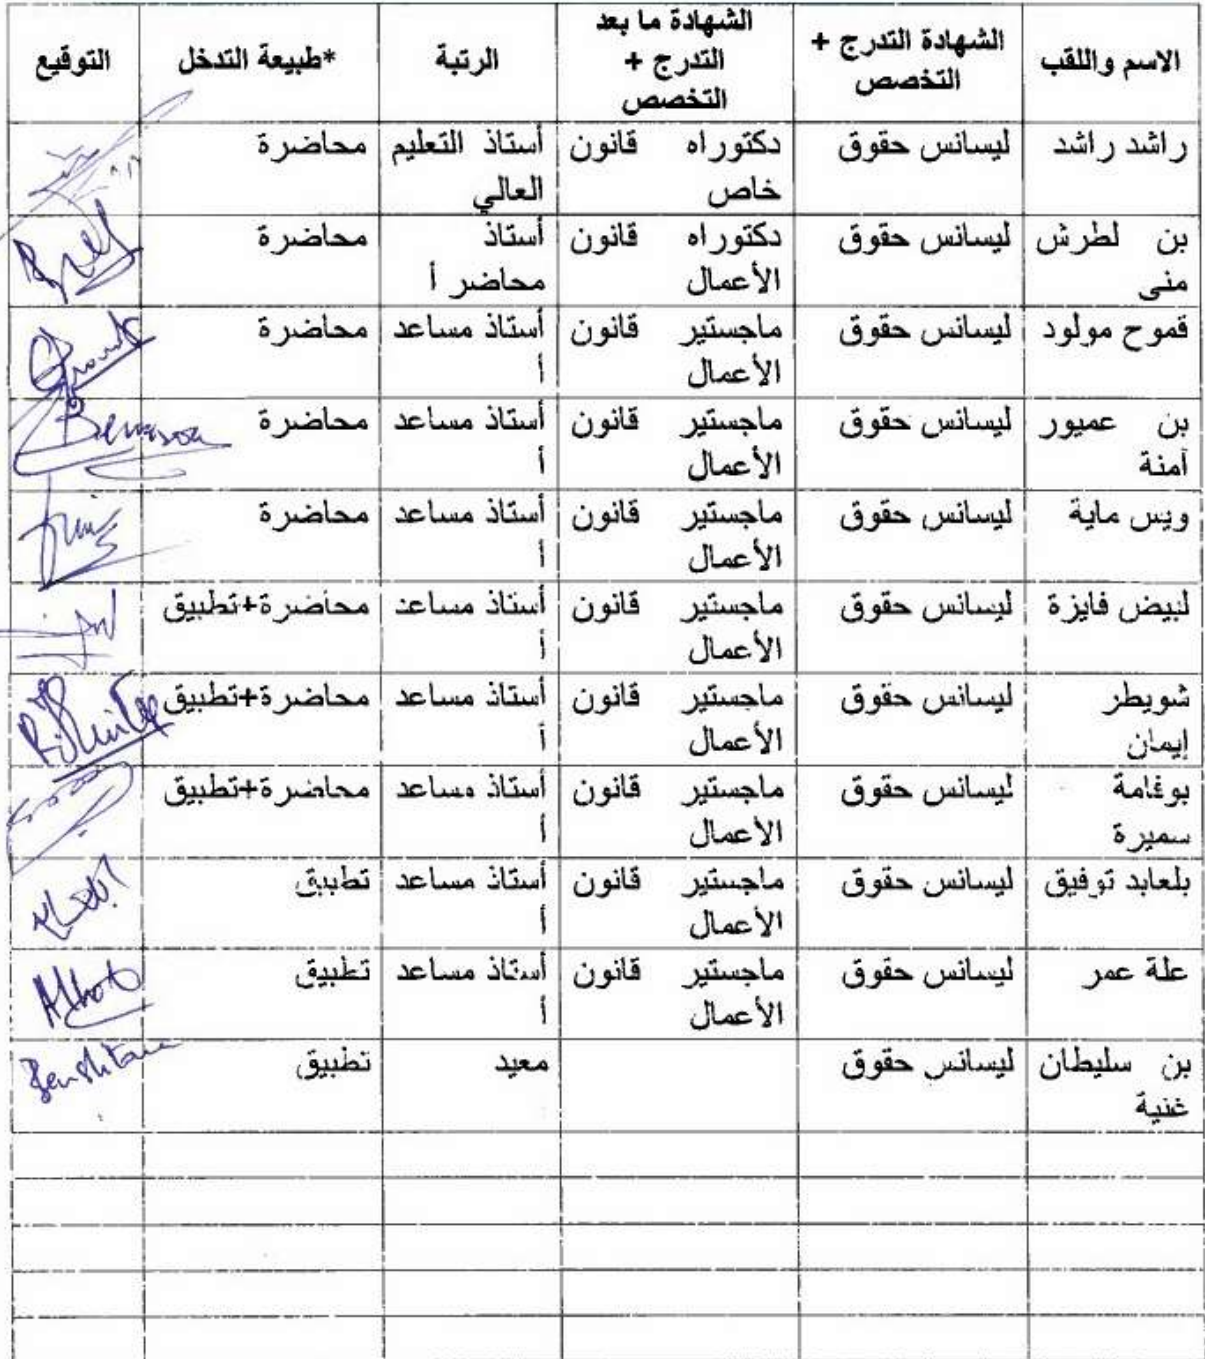 الاسم واللقب	الشهادة التدرج + التخصص	الشهادة ما بعد التدرج + التخصص	الرتبة	*طبيعة التدخل	التوقيع
راشد راشد	ليسانس حقوق	دكتوراه قانون خاص	أستاذ التعليم العالي	محاضرة
بن لطرش منى	ليسانس حقوق	دكتوراه قانون الأعمال	أستاذ محاضر أ	محاضرة
قموح مولود	ليسانس حقوق	ماجستير قانون الأعمال	أستاذ مساعد أ	محاضرة
بن عميور آمنة	ليسانس حقوق	ماجستير قانون الأعمال	أستاذ مساعد أ	محاضرة
ويس ماية	ليسانس حقوق	ماجستير قانون الأعمال	أستاذ مساعد أ	محاضرة
لبيض فايزة	ليسانس حقوق	ماجستير قانون الأعمال	أستاذ مساعد أ	محاضرة+تطبيق
شويطر إيمان	ليسانس حقوق	ماجستير قانون الأعمال	أستاذ مساعد أ	محاضرة+تطبيق
سميرة	ليسانس حقوق	ماجستير قانون الأعمال	أستاذ مساعد أ	محاضرة+تطبيق
بلعابد توفيق	ليسانس حقوق	ماجستير قانون الأعمال	أستاذ مساعد أ	تطبيق
علة عمر	ليسانس حقوق	ماجستير قانون الأعمال	أستاذ مساعد أ	تطبيق
بن سليطان غنية	ليسانس حقوق		معيد	تطبيق